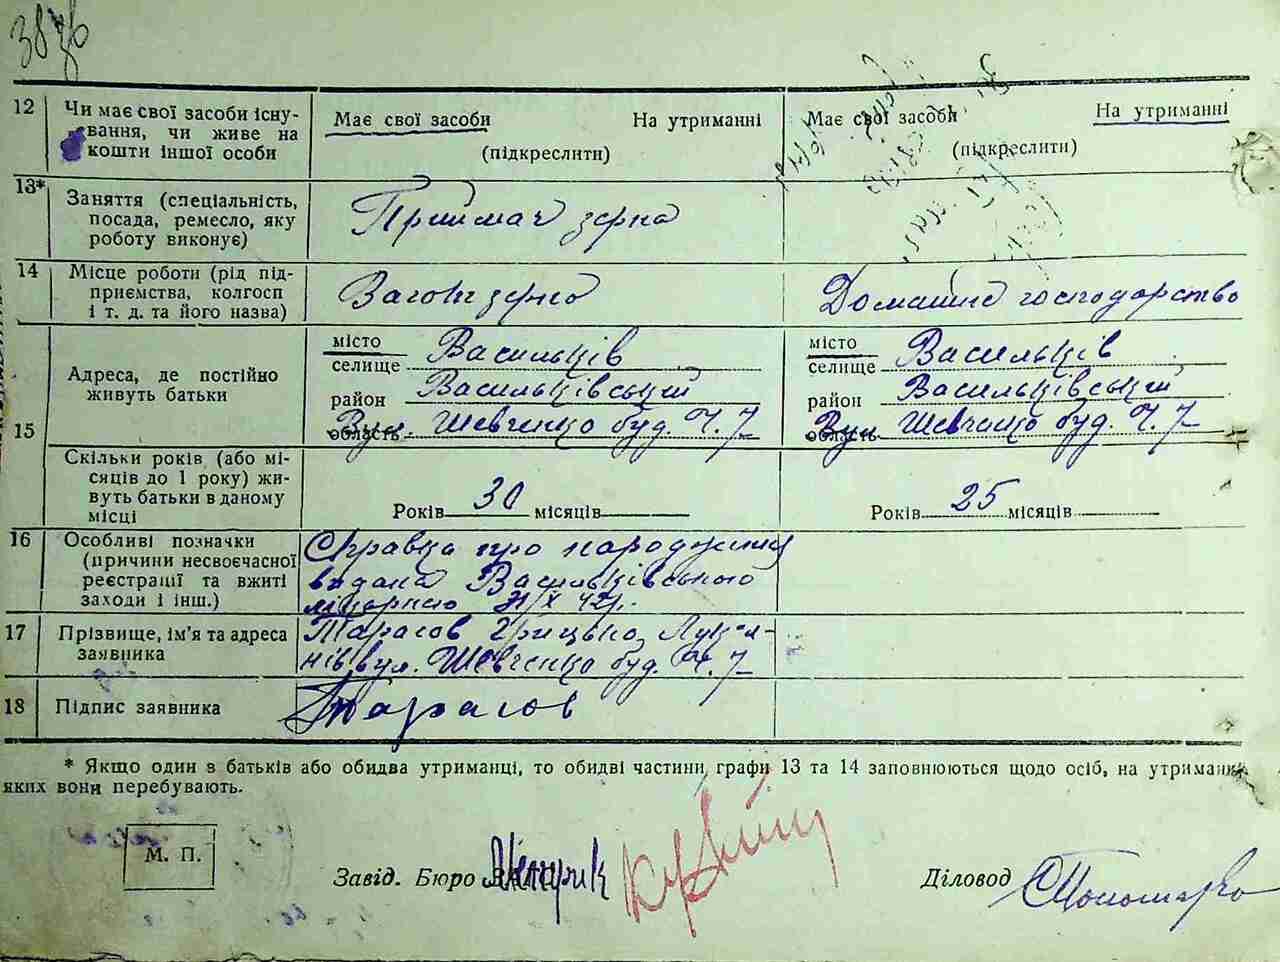 12 Чи має свої засоби існу-
вання, чи живе на
кошти іншої особи
Має свої засоби На утриманні
(підкреслити)
Має свої засоби На утриманні
(підкреслити)
13* Заняття (спеціальність,
посада, ремесло, яку
роботу виконує)
Приймач зерна
14 Місце роботи (рід під-
приємства, колгосп
і т. д. та його назва)
Заготзерно
Домашнє господарство
15 Адреса, де постійно
живуть батьки
місто Васильків
селище
район Васильківський
область Вул. Шевченко буд. Ч. 7
місто Васильків
селище
район Васильківський
область Вул Шевченко буд. Ч. 7
Скільки років (або мі-
сяців до 1 року) жи-
вуть батьки в даному
місці
Років 30 місяців
Років 25 місяців
16 Особливі позначки
(причини несвоєчасної
реєстрації та вжиті
заходи і інш.)
Справка про народження
видана Васильківською
лікарнею
17 Прізвище, ім'я та адреса
заявника
Тарасов Грицько
вул. Шевченко буд. Ч. 7
18 Підпис заявника
Тарасов
* Якщо один з батьків або обидва утриманці, то обидві частини графи 13 та 14 заповнюються щодо осіб, на утриманні
яких вони перебувають.
М. П.
Завід. Бюро ЗАГС
Діловод Пономарко